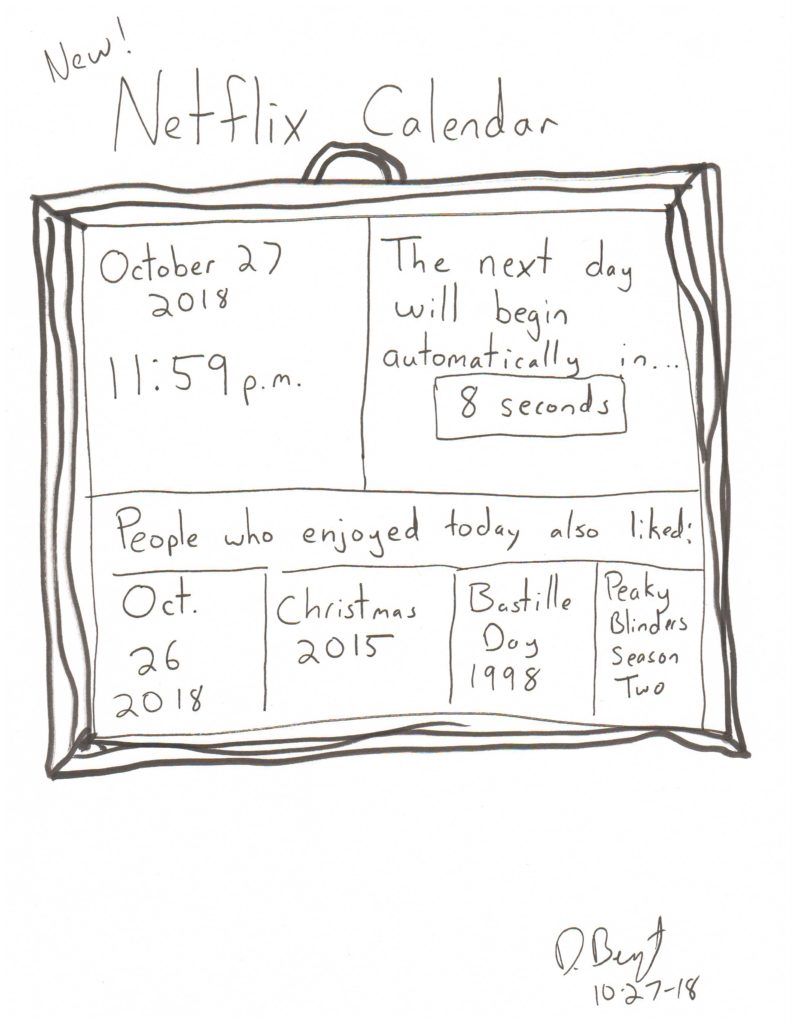 New!
Netflix Calendar
October 27
2018
11:59 p.m.
The next day
will begin
automatically in...
8 seconds
People who enjoyed today also liked:
Oct.
26
2018
Christmas
2015
Bastille
Day
1998
Peaky
Blinders
Season
Two
10-27-18